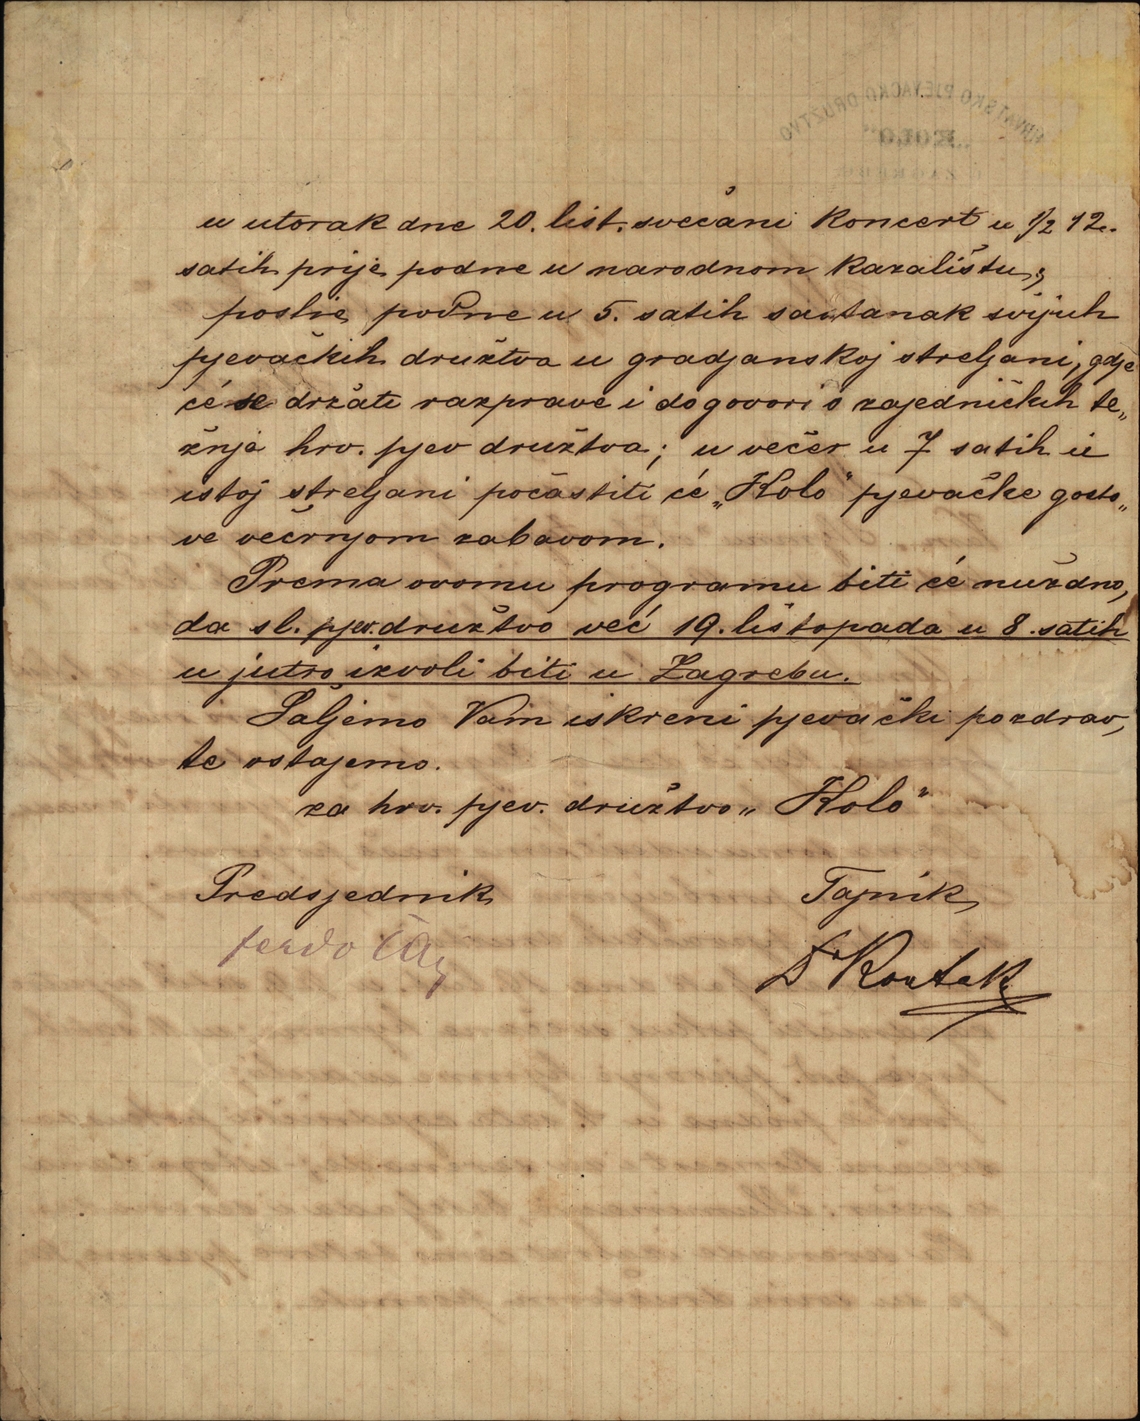 HRVATSKO PJEVAČKO DRUŽTVO
„KOLO"
u utorak dne 20. list. svečani koncert u 1/2 12.
satih prije podne u narodnom kazalištu;
poslie podne u 5. satih sastanak svijuh
pjevačkih družtva u gradjanskoj streljani, gdje
će se držati razprave i dogovori o zajedničkih te„
žnja hrv. pjev družtva; u večer u 7 satih u
istoj streljani počastiti će „Kolo" pjevačke gosto„
ve večrnjom zabavom.
Prema ovomu programu biti će nuždno,
da sl. pjev. družtvo već 19. listopada u 8. satih
u jutro izvoli biti u Zagrebu.
Šaljemo Vam iskreni pjevački pozdrav,
te ostajemo.
za hrv. pjev. družtvo „Kolo"
Predsjednik Tajnik
ferdo
Dr